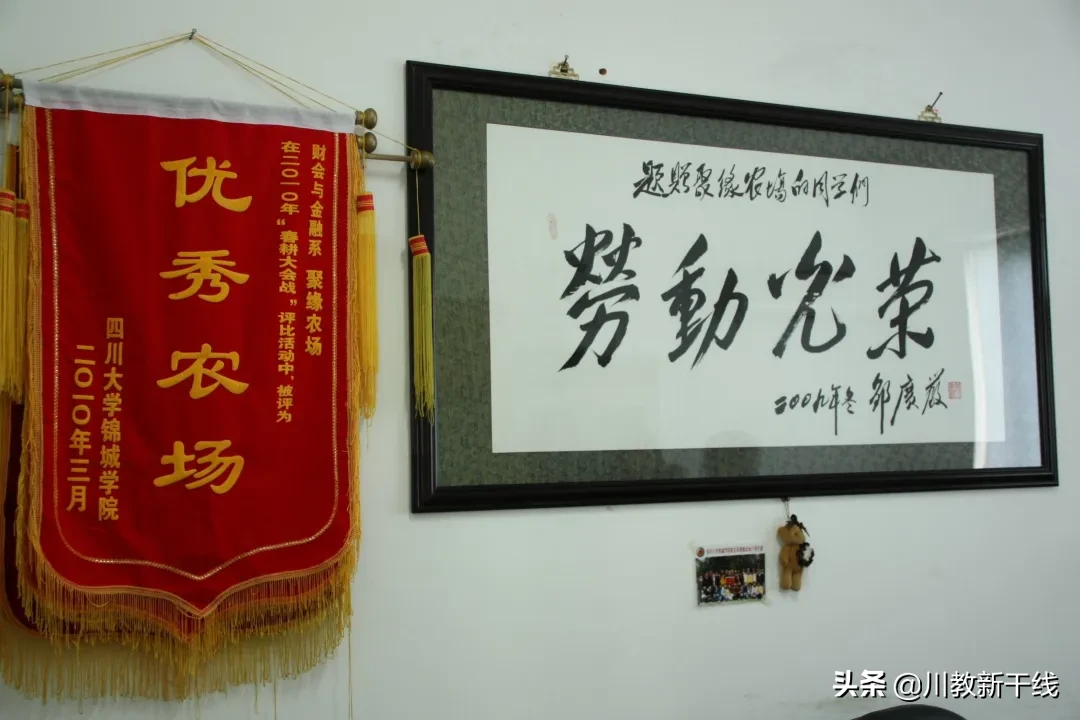 财会与金融系 聚缘农场
在二〇一〇年“春耕大会战”评比活动中，被评为
优秀农场
四川大学锦城学院
二〇一〇年三月
题赠聚缘农场的同学們
劳動光荣
二00九年冬 邹廣严
头条 @川教新干线